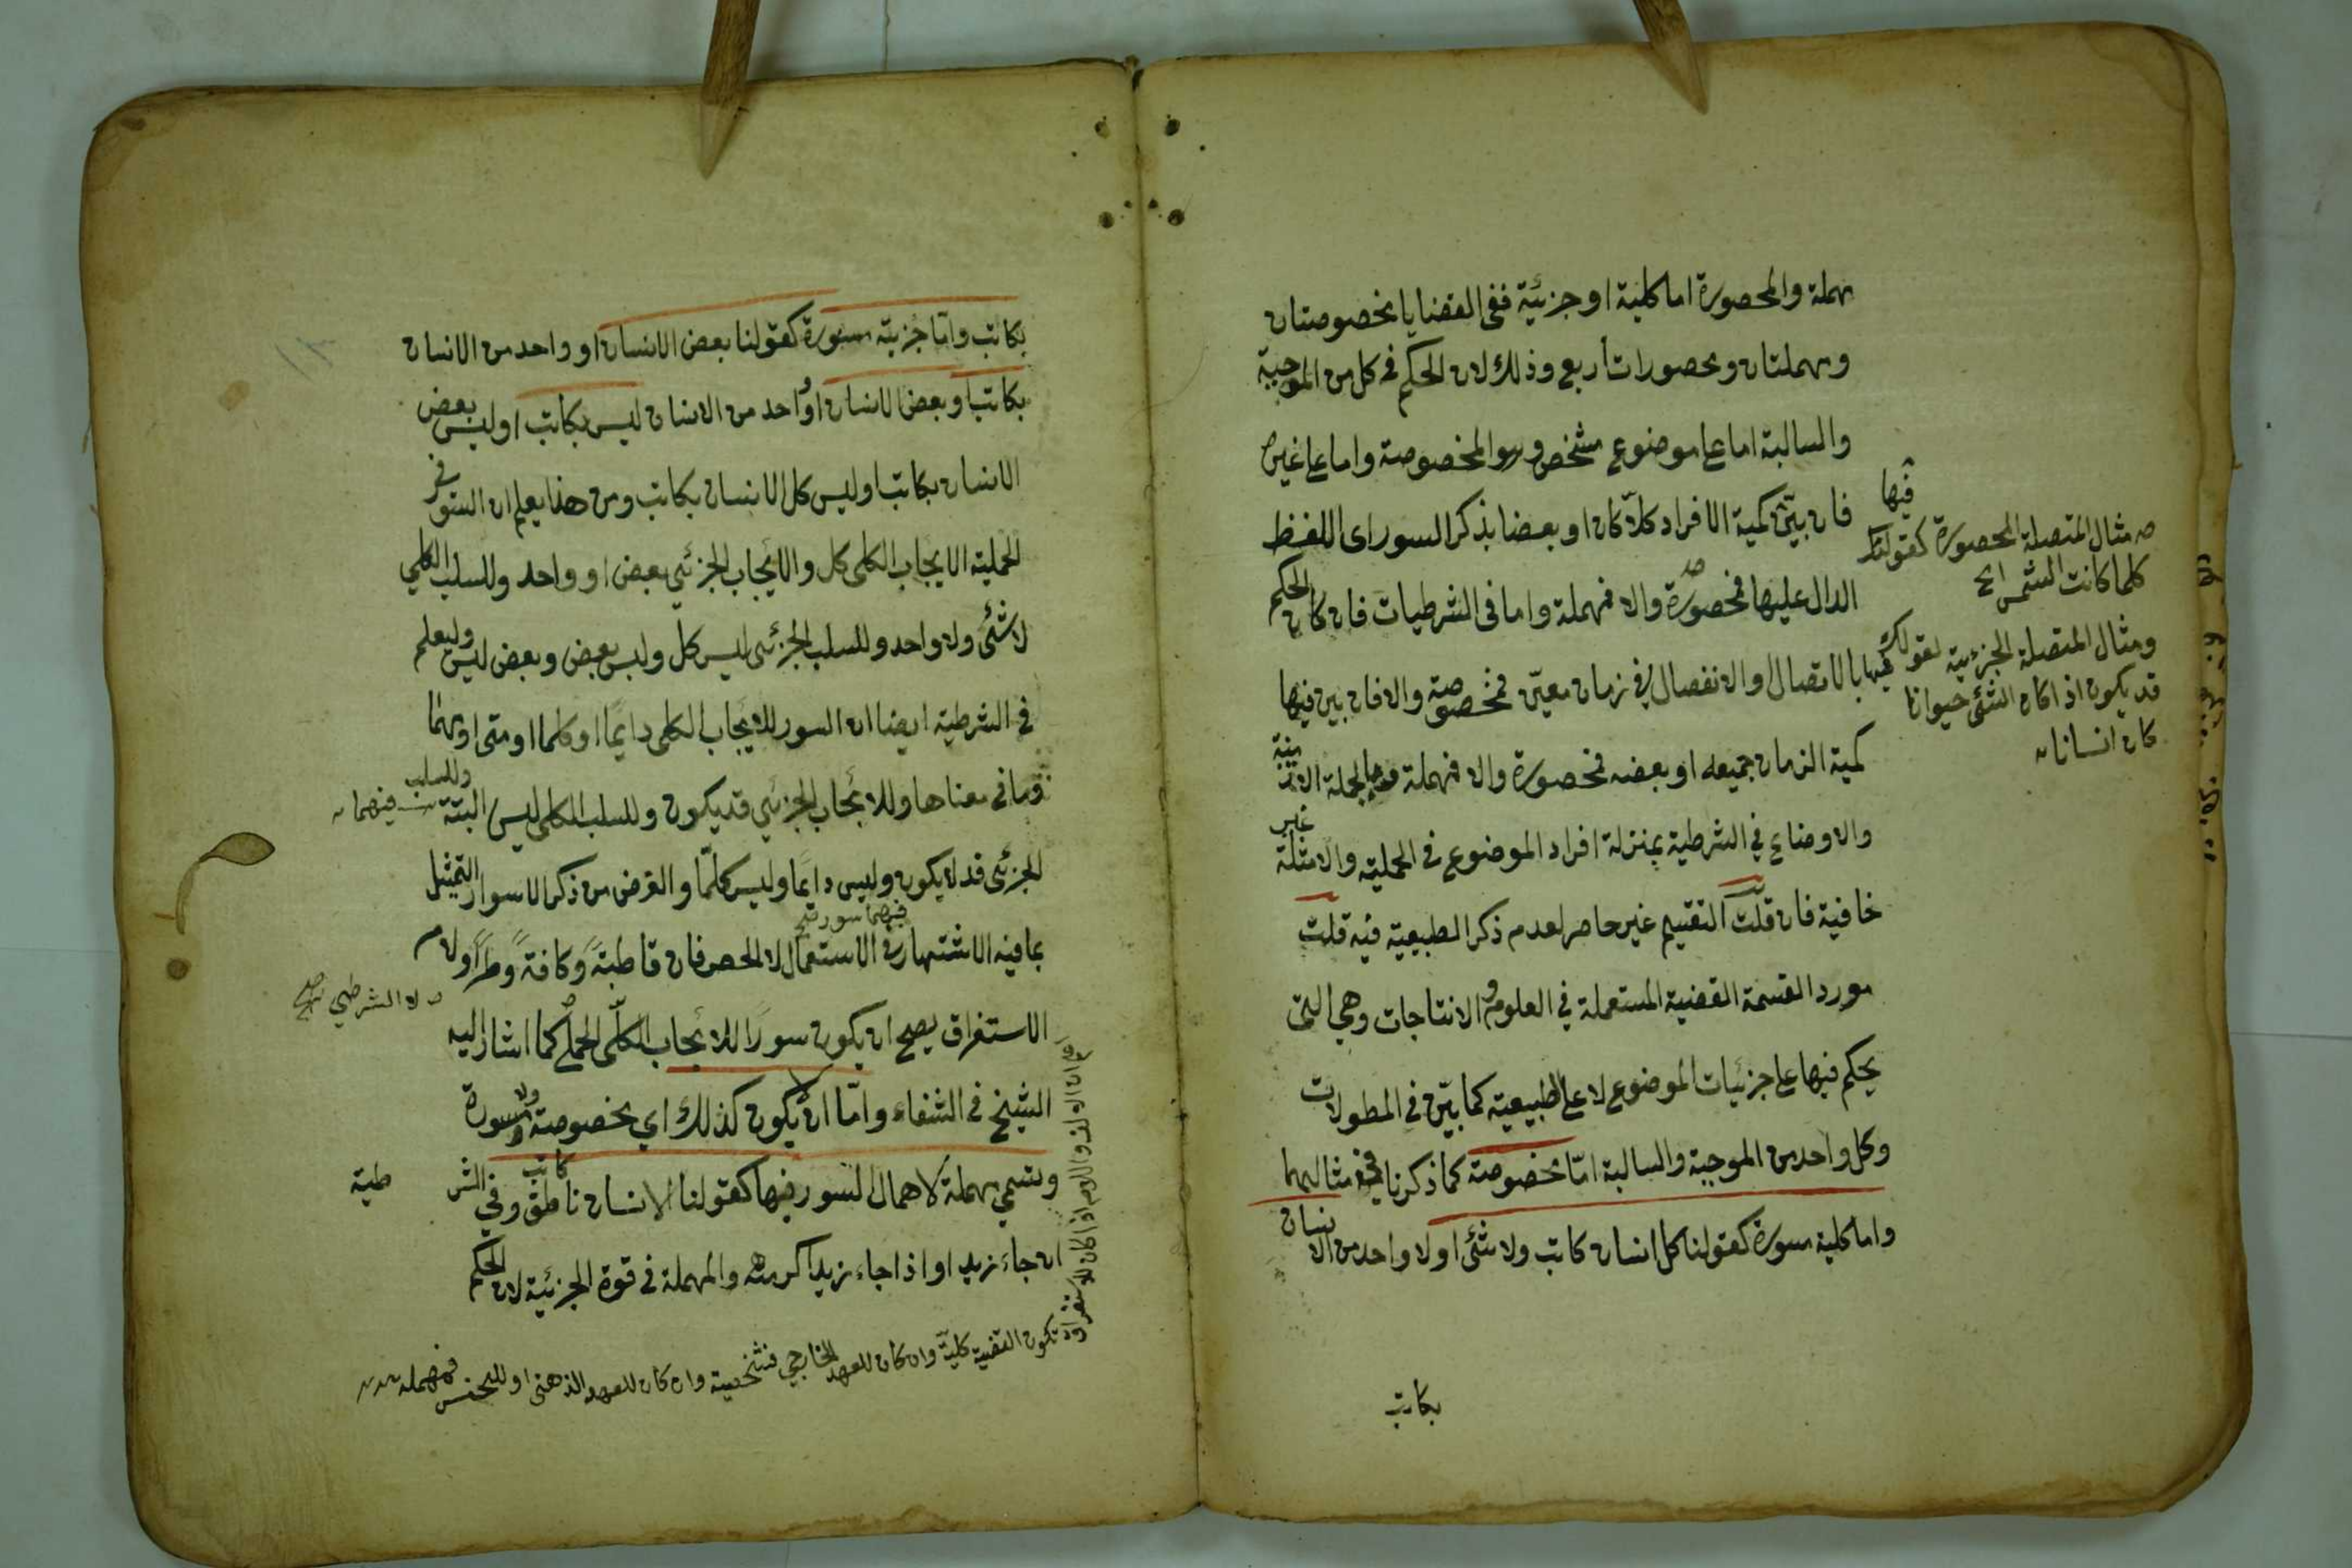 مهملة والمحصورة اما كلية او جزئية ففى القضايا مخصوصتان
ومهملتان ومحصورات أربع وذلك لان الحكم فى كل من الموجبة
والسالبة اما على موضوع مشخص وهو المخصوصة واما على غيره
فان بيّن كمية الافراد كلاّ كان او بعضا بذكر السور اى اللفظ
الدال عليها فمحصورة والا فمهملة واما فى الشرطيات فان كان الحكم
فيها بالاتصال او الانفصال فى زمان معيّن فمخصوصة والا فان بين فيها
كمية الزمان جميعه او بعضه فمحصورة والا فمهملة وبالجملة الازمنة
والاوضاع في الشرطية بمنزلة افراد الموضوع فى الحملية والامثلة غير
خافية فان قلت التقسيم غير حاصر لعدم ذكر الطبيعية فيه قلت
مورد القسمة القضية المستعملة في العلوم والانتاجات وهي التى
يحكم فيها على جزئيات الموضوع لا على الطبيعية كما بيّن فى المطولات
وكل واحد من الموجبة والسالبة امّا مخصوصة كما ذكرنا فى مثاليهما
واما كلية مسورة كقولنا كل انسان كاتب ولا شئ او لا واحد من الانسان
بكاتب
فيها
مثال المتصلة المحصورة كقولنا
كلما كانت الشمس الخ
ومثال المتصلة الجزئية كقولك
قد يكون اذا كان الشئ حيوانا
كان انسانا
بكاتب وامّا جزئية مسورة كقولنا بعض الانسان او واحد من الانسان
بكاتب او بعض الانسان او واحد من الانسان ليس بكاتب او ليس بعض
الانسان بكاتب او ليس كل الانسان بكاتب ومن هذا يعلم ان السور فى
الحملية الايجاب الكلى كل والايجاب الجزئي بعض او واحد وللسلب الكلي
لا شئ ولا واحد وللسلب الجزئى ليس كل وليس بعض وبعض ليس وليعلم
فى الشرطية ايضا ان السور للايجاب الكلى دايمًا او كلما او متى او مهما
وما فى معناها وللايجاب الجزئي قد يكون وللسلب الكلى ليس البتة وللسلب
فيهما
الجزئى قد لا يكون وليس دايمًا وليس كلمّا والغرض من ذكر الاسوار التمثيل
فيهما سور
بما فيه الاشتهار فى الاستعمال لا الحصر فان قاطبةً وكافةً وطرًا ولام
لا الشرطي
الاستغراق يصح ان يكون سورًا للايجاب الكلّى الحملى كما اشار اليه
الشيخ فى الشفاء وامّا ان لا يكون كذلك اي مخصوصة ولا مسورة
وتسمي مهملة لاهمال السور فيها كقولنا الانسان ناطق كاتب وفي الشرطية
ان جاء زيد او اذا جاء زيد اكرمته والمهملة فى قوة الجزئية لان الحكم
تكون القضية كلية وان كان للعهد الخارجي فشخصية وان كان للعهد الذهنى او للجنس فمهملة